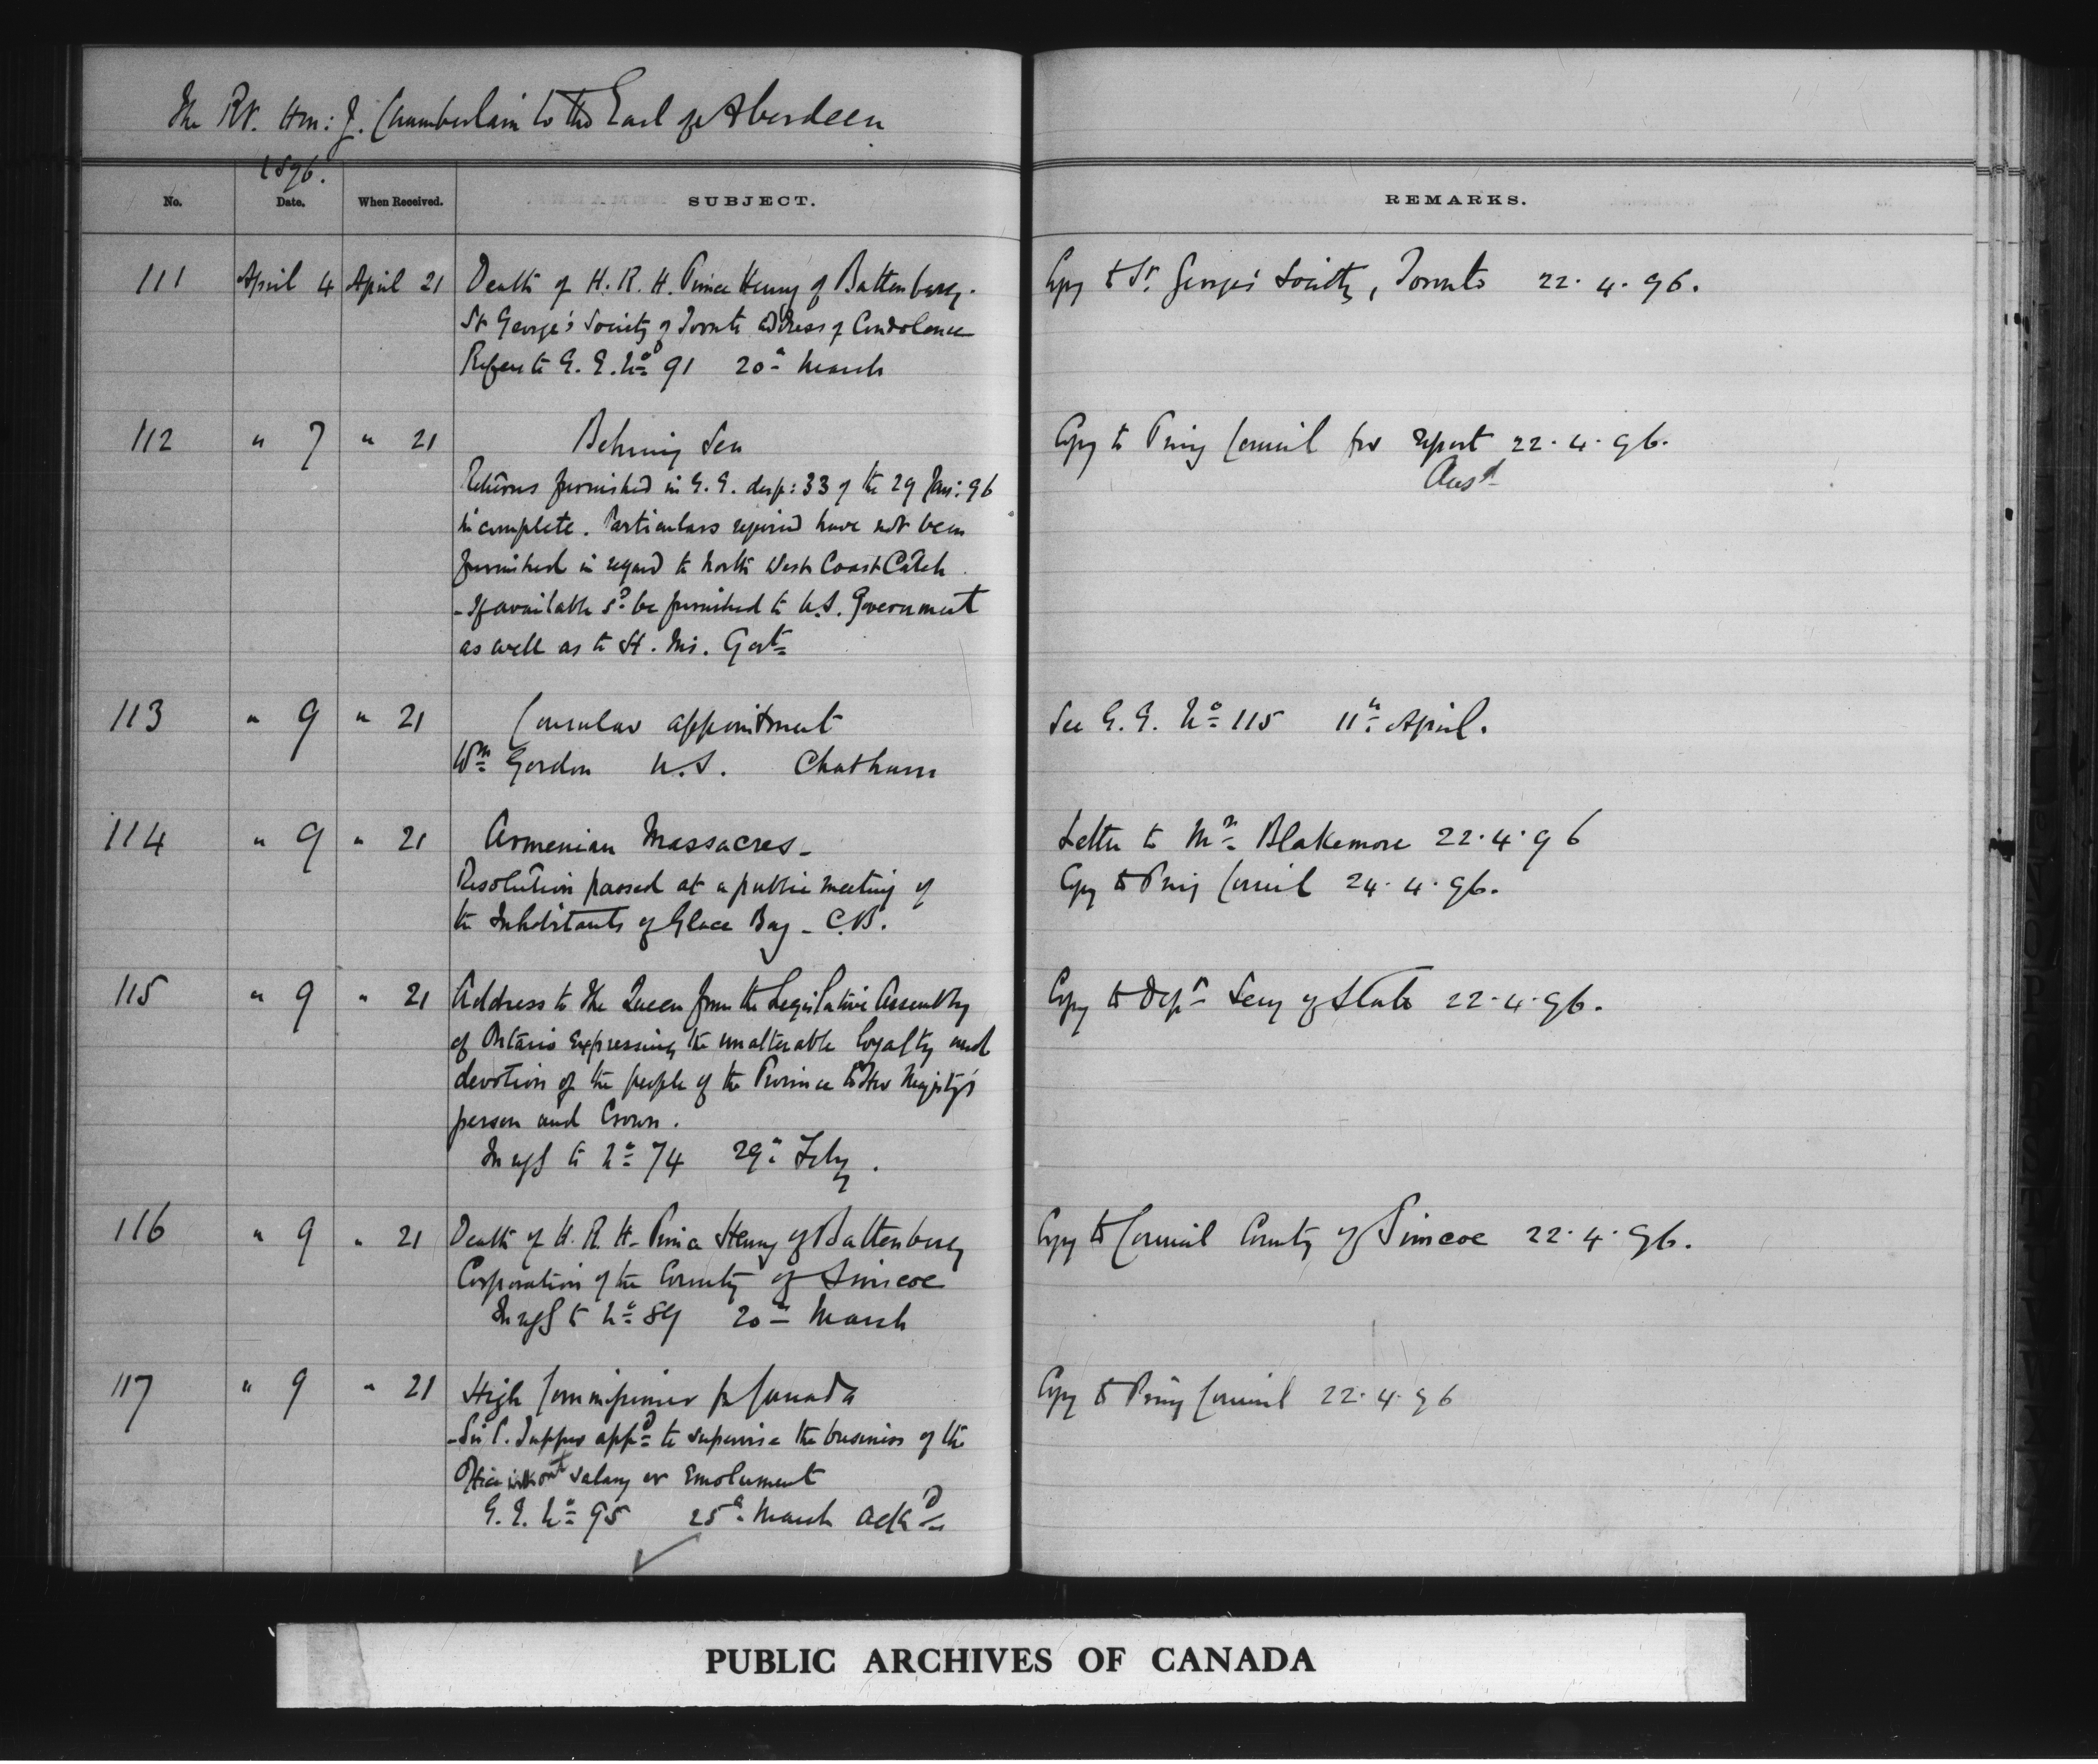 The Rt. Hon: J. Chamberlain to the Earl of Aberdeen
1896.
No. Date. When Received. SUBJECT. REMARKS.
111 April 4 April 21 Death of H. R. H. Prince Henry of Battenberg. Copy to St. George's Society, Toronto 22. 4. 96.
St George's Society of Toronto address of Condolence
Refers to G. G. No 91 20th March
112 " 7 " 21 Behring Sea Copy to Privy Council for report 22. 4. 96.
Ansd
Returns furnished in G. G. desp: 33 of the 29 Jan: 96
incomplete. Particulars required have not been
furnished in regard to North West Coast Catch
- If available sd be furnished to U.S. Government
as well as to H. Ms. Govt
113 " 9 " 21 Consular appointment See G. G. No 115 11th April.
Wm Gordon U.S. Chatham
114 " 9 " 21 Armenian Massacres - Letter to Mr Blakemore 22. 4. 96
Resolution passed at a public meeting of Copy to Privy Council 24. 4. 96.
the Inhabitants of Glace Bay - C.B.
115 " 9 " 21 Address to the Queen from the Legislative Assembly Copy to Secy of State 22. 4. 96.
of Ontario expressing the unalterable loyalty and
devotion of the people of the Province to Her Majesty's
person and Crown.
In reply to No 74 29th Feby.
116 " 9 " 21 Death of H. R. H. Prince Henry of Battenberg Copy to Council County of Simcoe 22. 4. 96.
Corporation of the County of Simcoe
In reply to No 89 20th March
117 " 9 " 21 High Commissioner for Canada Copy to Privy Council 22. 4. 96
- Sir C. Tupper appd to supervise the business of the
Office without salary or Emolument
G. G. No 95 25th March Ackd
PUBLIC ARCHIVES OF CANADA